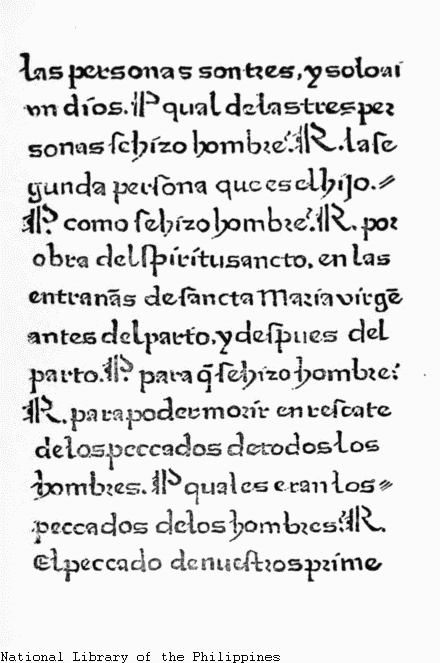 las personas son tres, y solo ai
vn dios. P qual de las tres per
sonas se hizo hombre? R. la se
gunda persona que es el hijo.
P como se hizo hombre? R. por
obra del spiritu sancto, en las
entranãs de sancta Maria virgẽ
antes del parto, y despues del
parto. P para q̃ se hizo hombre?
R. para poder morir en rescate
de los peccados de todos los
hombres. P quales eran los
peccados de los hombres? R.
El peccado de nuestros prime
National Library of the Philippines